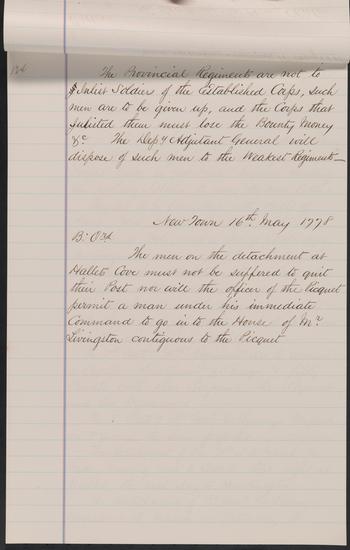 The Provincial Regiments are not to
Inlist Soldiers of the Established Corps, such
men are to be given up, and the Corps that
Inlisted them must lose the Bounty Money
&c The Depy Adjutant General will
dispose of such men to the Weakest Regiments—
New Town 16th May 1778
B: Ord
The men on the detachment at
Hallets Cove must not be suffered to quit
their Post nor will the officer of the Picquet
permit a man under his immediate
Command to go in to the House of Mr
Livingston contiguous to the Picquet